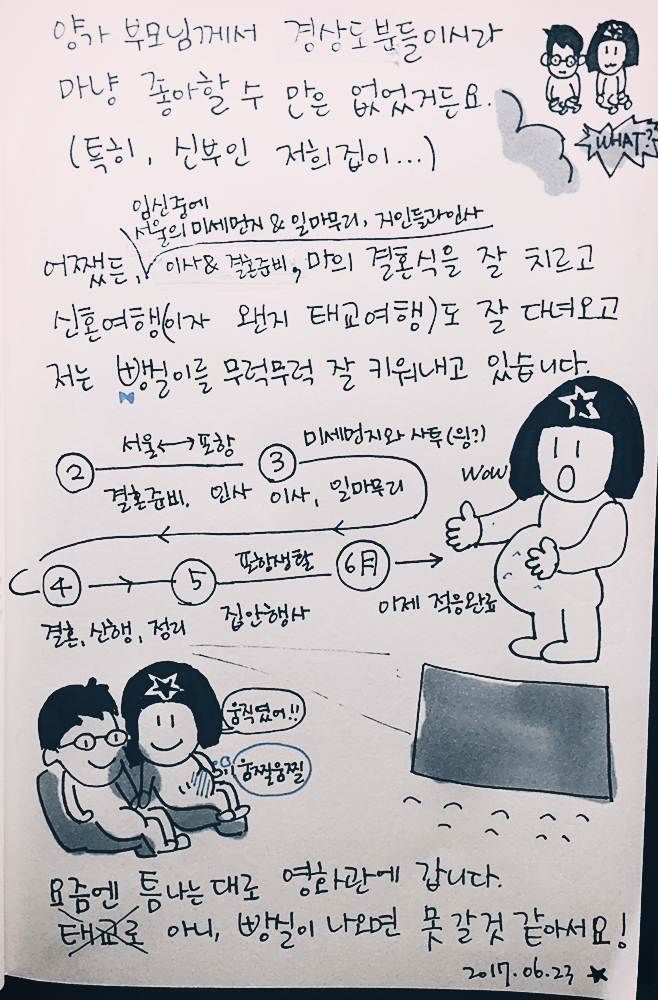 양가 부모님께서 경상도분들이시라
마냥 좋아할 수 만은 없었거든요.
(특히, 신부인 저희집이...)
WHAT?
임신중에
서울의 미세먼지 & 일마무리, 지인들과인사
이사 & 결혼준비,
어쨌든, 마의 결혼식을 잘 치르고
신혼여행(이자 왠지 태교여행)도 잘 다녀오고
저는 빵실이를 무럭무럭 잘 키워내고 있습니다.
② 서울↔포항 ③ 미세먼지와 사투(읭?)
결혼준비, 인사 이사, 일마무리
WOW
④ ⑤ 포항생활 6月
결혼, 신행, 정리 집안행사 이제 적응완료
움직였어!!
움찔움찔
요즘엔 틈나는대로 영화관에 갑니다.
태교로 아니, 빵실이 나오면 못 갈것 같아서요!
2017.06.23 ★